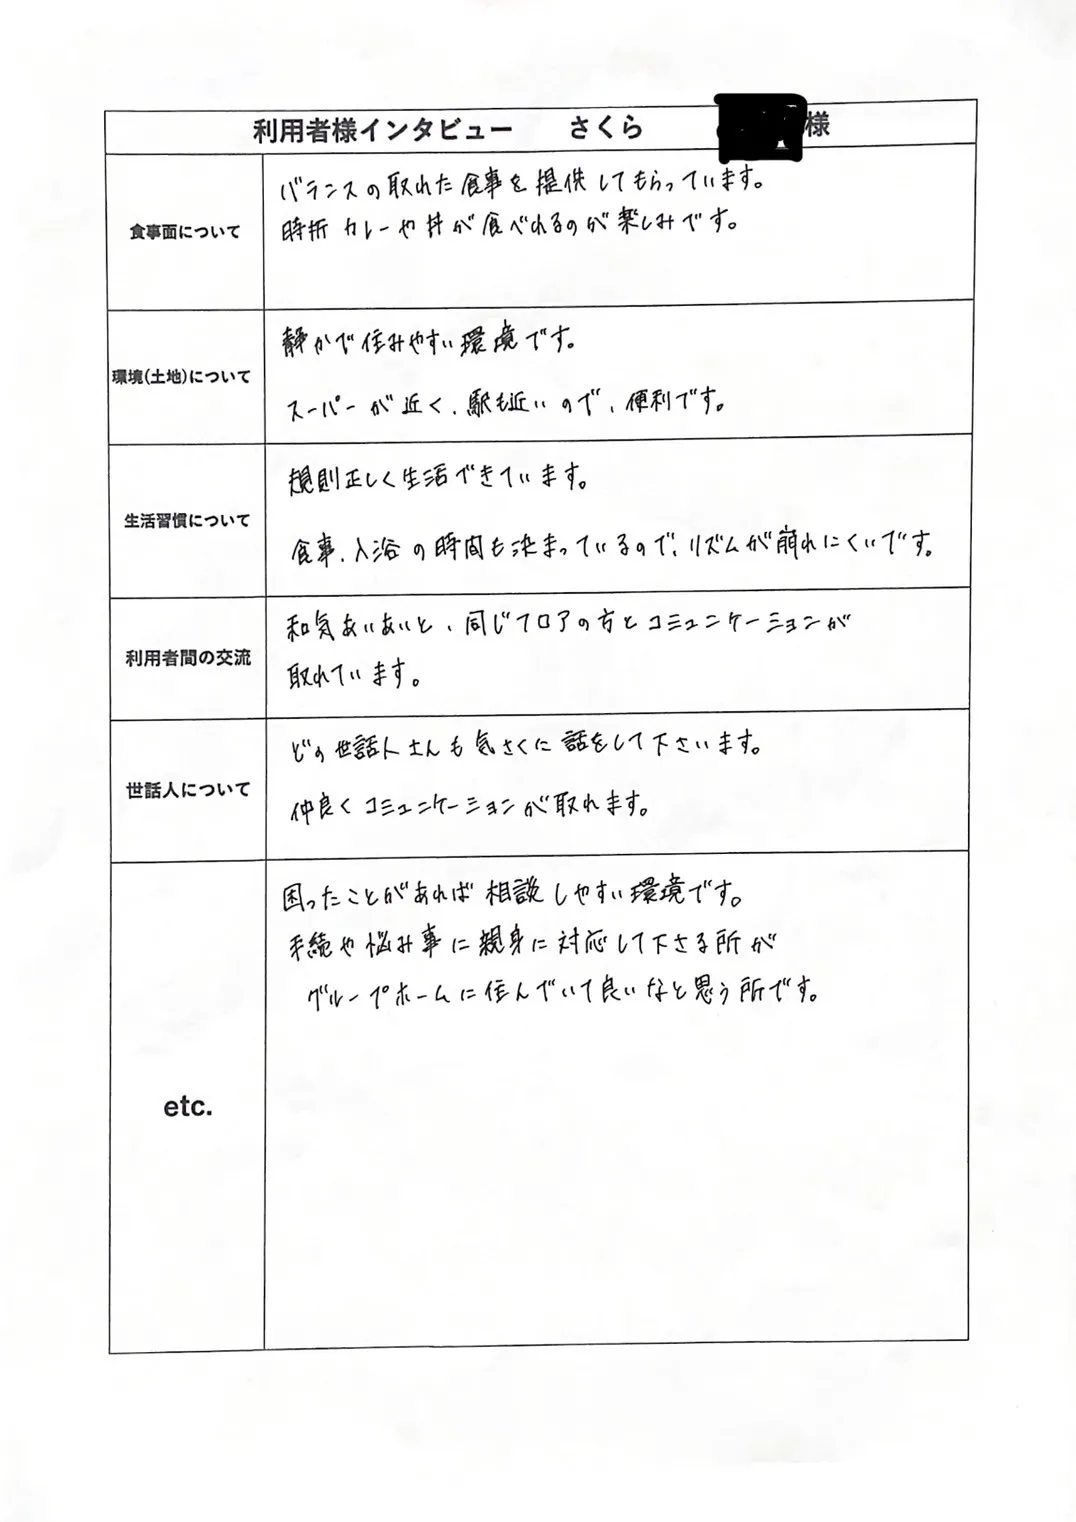 利用者様インタビュー さくら 様
食事面について
バランスの取れた食事を提供してもらっています。
時折カレーや丼が食べれるのが楽しみです。
環境(土地)について
静かで住みやすい環境です。
スーパーが近く、駅も近いので、便利です。
生活習慣について
規則正しく生活できています。
食事、入浴の時間も決まっているので、リズムが崩れにくいです。
利用者間の交流
和気あいあいと、同じフロアの方とコミュニケーションが
取れています。
世話人について
どの世話人さんも気さくに話をして下さいます。
仲良くコミュニケーションが取れます。
etc.
困ったことがあれば相談しやすい環境です。
手続や悩み事に親身に対応して下さる所が
グループホームに住んでいて良いなと思う所です。